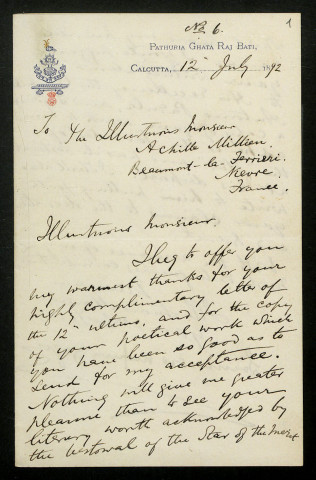 No 6.
1
PATHURIA GHATA RAJ BATI,
CALCUTTA, 12th July 1892
To The Illustrious Monsieur
Achille Millien
Beaumont-la-Ferrière.
Nièvre
France.
Illustrious Monsieur.
I beg to offer you
my warmest thanks for your
highly complimentary letter of
the 12th ultimo, and for the copy
of your poetical work which
you have been so good as to
send for my acceptance.
Nothing will give me greater
pleasure than to see your
literary worth acknowledged by
the bestowal of the Star of the